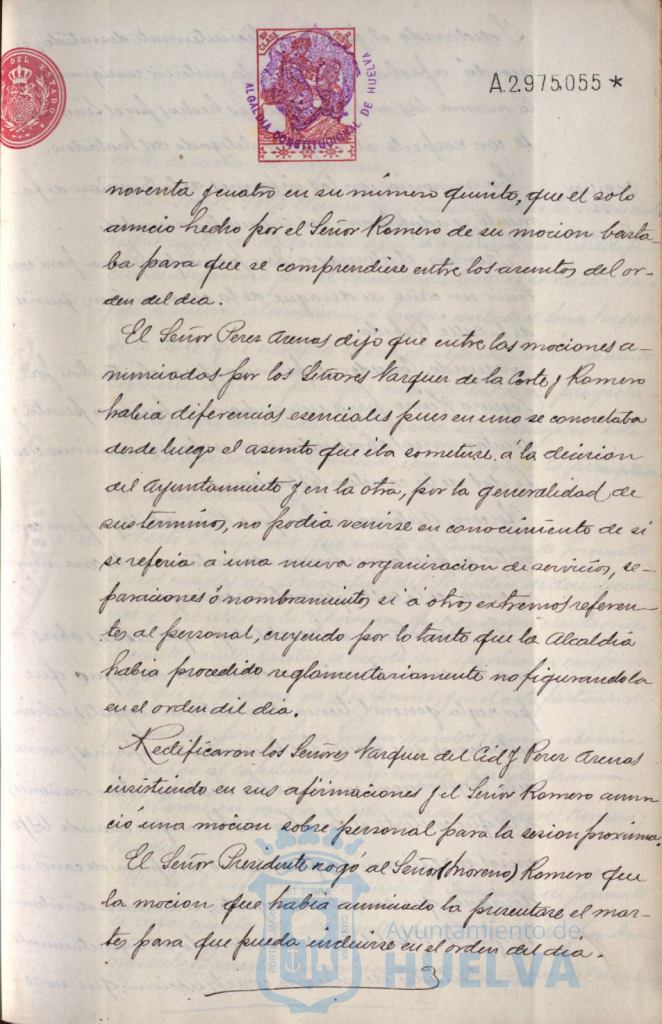 DEL ESTADO
3ª CLASE
ALCALDIA CONSTITUCIONAL DE HUELVA
A.2.975.055 *
noventa y cuatro en su número quinto, que el solo
anuncio hecho por el Señor Romero de su mocion basta-
ba para que se comprendiese entre los asuntos del or-
den del dia.
El Señor Perez Arenas dijo que entre las mociones a-
nunciadas por los Señores Vazquez de la Corte y Romero
habia diferencias esenciales pues en uno se concretaba
desde luego el asunto que iba someterse á la decision
del Ayuntamiento y en la otra, por la generalidad de
sus terminos, no podia venirse en conocimiento de si
se referia á una nueva organizacion de servicios, se-
paraciones ó nombramientos si á otros extremos referen-
tes al personal, creyendo por lo tanto que la Alcaldia
habia procedido reglamentariamente no figurandola
en el orden del dia.
Rectificaron los Señores Vazquez del Cid y Perez Arenas
insistiendo en sus afirmaciones y el Señor Romero anun-
ció una mocion sobre personal para la sesion proxima.
El Señor Presidente rogó al Señor (Moreno) Romero que
la mocion que habia anunciado la presentare el mar-
tes para que pueda incluirse en el orden del dia.
Ayuntamiento de
HUELVA